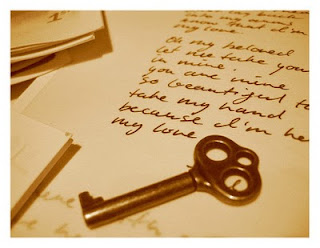 my love.
Oh my beloved
let me take you
in mine
you are mine
so beautiful to
take my hand
because I'm he
my love